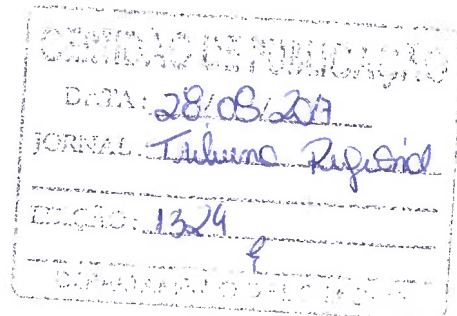 CERTIDÃO DE PUBLICAÇÃO
DATA: 28/08/2017
JORNAL: Tribuna Regional
EDIÇÃO: 1324